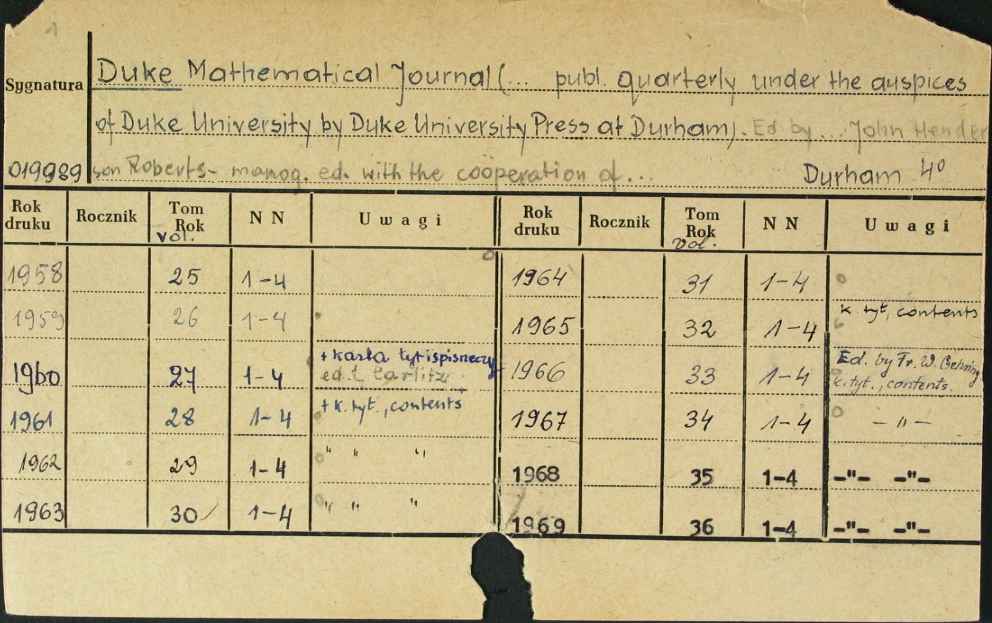 1
Sygnatura
Duke Mathematical Journal (... publ. quarterly under the auspices
of Duke University by Duke University Press at Durham). Ed by ... John Hender
019989 son Roberts - manag. ed. with the cooperation of ... Durham 4°
Rok druku Rocznik Tom Rok vol. N N Uwagi Rok druku Rocznik Tom Rok vol. N N Uwagi
1958 25 1-4 1964 31 1-4
1959 26 1-4 1965 32 1-4 k tyt, contents
1960 27 1-4 + karta tyt i spis rzeczy ed. L. Carlitz 1966 33 1-4 Ed. by Fr. W. k. tyt., contents.
1961 28 1-4 + k. tyt., contents 1967 34 1-4 - " -
1962 29 1-4 " " " 1968 35 1-4 -"- -"-
1963 30 1-4 " " " 1969 36 1-4 -"- -"-